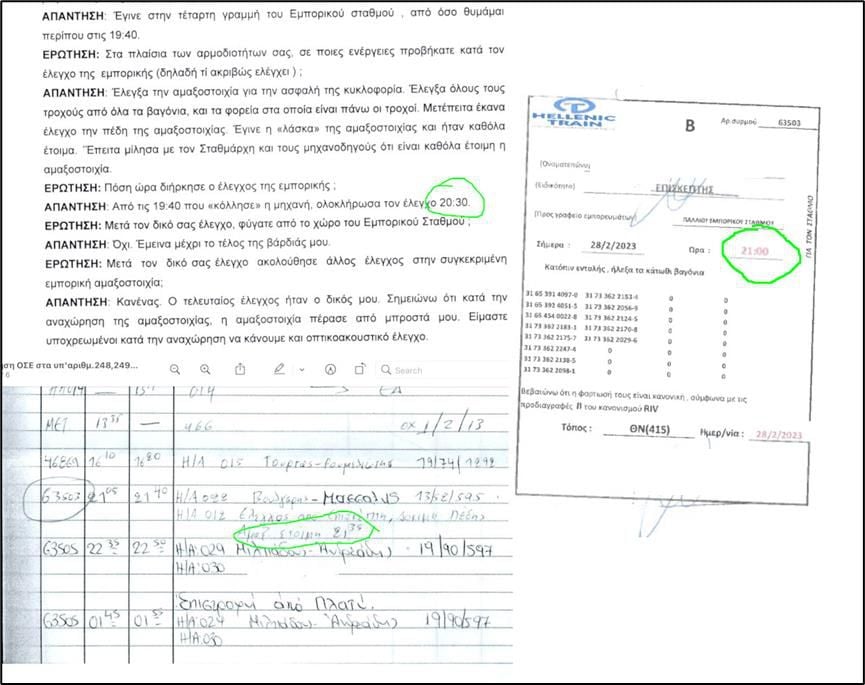 ΑΠΑΝΤΗΣΗ: Έγινε στην τέταρτη γραμμή του Εμπορικού σταθμού , από όσο θυμάμαι
περίπου στις 19:40.
ΕΡΩΤΗΣΗ: Στα πλαίσια των αρμοδιοτήτων σας, σε ποιες ενέργειες προβήκατε κατά τον
έλεγχο της εμπορικής (δηλαδή τί ακριβώς ελέγχει ) ;
ΑΠΑΝΤΗΣΗ: Έλεγξα την αμαξοστοιχία για την ασφαλή της κυκλοφορία. Έλεγξα όλους τους
τροχούς από όλα τα βαγόνια, και τα φορεία στα οποία είναι πάνω οι τροχοί. Μετέπειτα έκανα
έλεγχο την πέδη της αμαξοστοιχίας. Έγινε η «λάσκα» της αμαξοστοιχίας και ήταν καθόλα
έτοιμα. Έπειτα μίλησα με τον Σταθμάρχη και τους μηχανοδηγούς ότι είναι καθόλα έτοιμη η
αμαξοστοιχία.
ΕΡΩΤΗΣΗ: Πόση ώρα διήρκησε ο έλεγχος της εμπορικής ;
ΑΠΑΝΤΗΣΗ: Από τις 19:40 που «κόλλησε» η μηχανή, ολοκλήρωσα τον έλεγχο 20:30.
ΕΡΩΤΗΣΗ: Μετά τον δικό σας έλεγχο, φύγατε από το χώρο του Εμπορικού Σταθμού ;
ΑΠΑΝΤΗΣΗ: Όχι. Έμεινα μέχρι το τέλος της βάρδιάς μου.
ΕΡΩΤΗΣΗ: Μετά τον δικό σας έλεγχο ακολούθησε άλλος έλεγχος στην συγκεκριμένη
εμπορική αμαξοστοιχία;
ΑΠΑΝΤΗΣΗ: Κανένας. Ο τελευταίος έλεγχος ήταν ο δικός μου. Σημειώνω ότι κατά την
αναχώρηση της αμαξοστοιχίας, η αμαξοστοιχία πέρασε από μπροστά μου. Είμαστε
υποχρεωμένοι κατά την αναχώρηση να κάνουμε και οπτικοακουστικό έλεγχο.
ηση ΟΣΕ στα υπ'αριθμ.248,249...
6
Search
ΜΕΤ 13 35 — 466 οχ 1/2/13
46861 16 10 16 20 Η/Α 015 19/74/1292
63503 21 05 21 40 Η/Α 028 Βουλγαρης-Μασσαλης 13/52/595
Η/Α 012 Ελεγχος απο επισκεπτη, δοκιμη Πεδης
Αμαξ ετοιμη 21 35
63505 22 35 22 50 Η/Α:029 Μιλτιάδου-Ανδρεάδης 19/90/597
Η/Α:030
Επιστροφή από Πλατύ.
63505 01 45 01 55 Η/Α:029 Μιλτιάδου-Ανδρεάδης 19/90/597
Η/Α:030
HELLENIC
TRAIN
Β
Αρ.συρμού 63503
(Ονοματεπώνυμο)
(Ειδικότητα) ΕΠΙΣΚΕΠΤΗΣ
(Προς γραφείο εμπορευμάτων) ΠΑΛΛΙΟΥ ΕΜΠΟΡΙΚΟΥ ΣΤΑΘΜΟΥ
ΓΙΑ ΤΟΝ ΣΤΑΘΜΟ
Σήμερα : 28/2/2023 Ώρα : 21:00
Κατόπιν εντολής , ήλεξα τα κάτωθι βαγόνια
31 65 391 4097-0 31 73 362 2153-4 0 0
31 65 392 4051-5 31 73 362 2056-9 0 0
31 65 454 0022-8 31 73 362 2124-5 0 0
31 73 362 2183-1 31 73 362 2170-8 0 0
31 73 362 2175-7 31 73 362 2029-6 0 0
31 73 362 2247-4 0 0 0
31 73 362 2138-5 0 0 0
31 73 362 2098-1 0 0 0
Βεβαιώνω ότι η φαρτωσή τους είναι κανονική , σύμφωνα με τις
προδιαγραφές Π του κανονισμού RIV
Τόπος : ΘΝ(415) Ημερ/νία : 28/2/2023